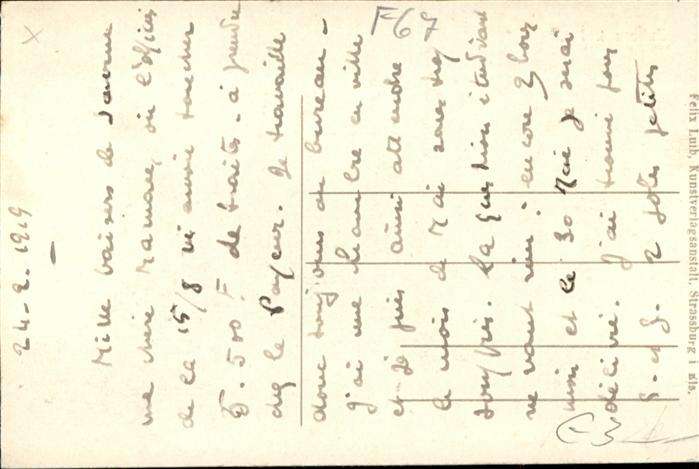 24-2.1919
Mille baisers de Saverne
ma chère Maman, où l'officier
de la 15/8 m'envoie toucher
5.500 F de traites - à prendre
chez le Payeur. Je travaille
donc toujours au bureau -
j'ai une chambre en ville
et je puis ainsi attendre
le mois de Mai sans trop
souffrir. La question étudiant
ne vaut rien : encore 3 mois
et le 30 Mai je suis
délivré. J'ai trouvé pour
2 jolis petits
F67
Felix Luib, Kunstverlagsanstalt, Strassburg i. Els.